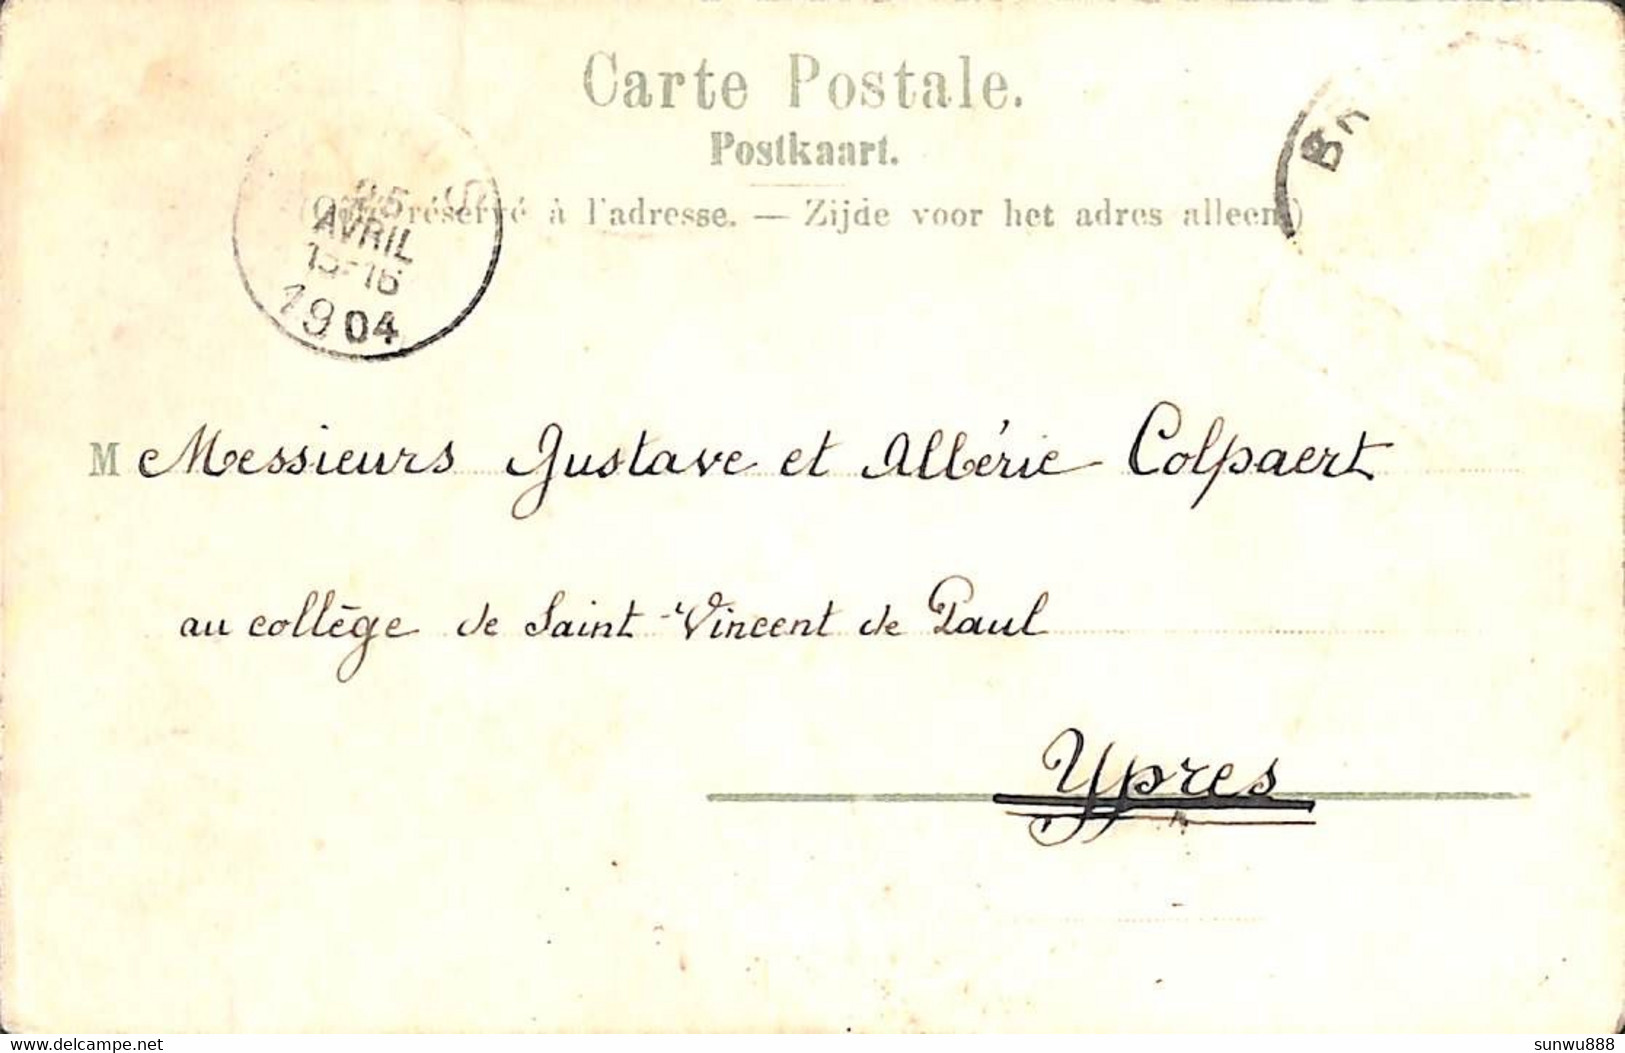 Carte Postale.
Postkaart.
réservé à l'adresse. — Zijde voor het adres alleen)
25
AVRIL
15-16
1904
M Messieurs Gustave et Albéric Colpaert
au collège de Saint-Vincent de Paul
Ypres
delcampe.net
sunwu888